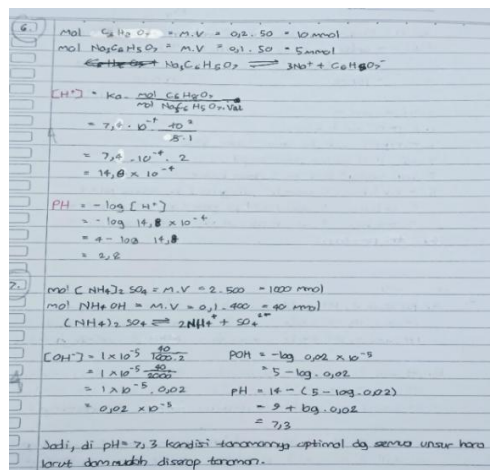 6.
mol C6H8O7 = M.V = 0,2 . 50 = 10 mmol
mol Na3C6H5O7 = M.V = 0,1 . 50 = 5 mmol
Na3C6H5O7 ⇌ 3Na+ + C6H8O7-
[H+] = Ka . mol C6H8O7 / mol Na3C6H5O7 . Val
= 7,4 . 10^-4 10^2 / 5.1
= 7,4 . 10^-4 . 2
= 14,8 × 10^-4
PH = - log [H+]
= - log 14,8 × 10^-4
= 4 - log 14,8
= 2,8
7.
mol (NH4)2 SO4 = M.V = 2.500 = 1000 mmol
mol NH4OH = M.V = 0,1 . 400 = 40 mmol
(NH4)2 SO4 ⇌ 2NH4+ + SO4^2-
[OH-] = 1 × 10^-5 40 / 1000.2
= 1 × 10^-5 40 / 2000
= 1 × 10^-5 . 0,02
= 0,02 × 10^-5
POH = -log 0,02 × 10^-5
= 5 - log. 0,02
PH = 14 - (5 - log. 0,02)
= 9 + log. 0,02
= 7,3
Jadi, di pH = 7,3 kondisi tanamannya optimal dg semua unsur hara
larut dan mudah diserap tanaman.